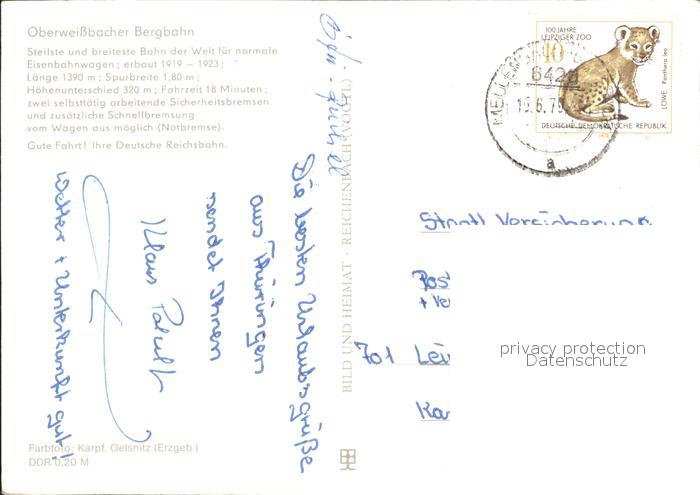 Oberweißbacher Bergbahn
Steilste und breiteste Bahn der Welt für normale
Eisenbahnwagen; erbaut 1919 – 1923;
Länge 1390 m; Spurbreite 1,80 m;
Höhenunterschied 320 m; Fahrzeit 18 Minuten;
zwei selbsttätig arbeitende Sicherheitsbremsen
und zusätzliche Schnellbremsung
vom Wagen aus möglich (Notbremse).
Gute Fahrt! Ihre Deutsche Reichsbahn.
Die besten Urlaubsgrüße
aus Thüringen
sendet Ihnen
Klaus
Wetter + Unterkunft gut!
Farbfoto: Karpf, Oelsnitz (Erzgeb.)
DDR 0,20 M
BILD UND HEIMAT · REICHENBACH (VOGTL)
100 JAHRE
LEIPZIGER ZOO
10
LÖWE Panthera leo
DEUTSCHE DEMOKRATISCHE REPUBLIK
642
15.6.79
a
Staatl Versicherung
Pos
+ Ve
701 Lei
Ka
privacy protection
Datenschutz